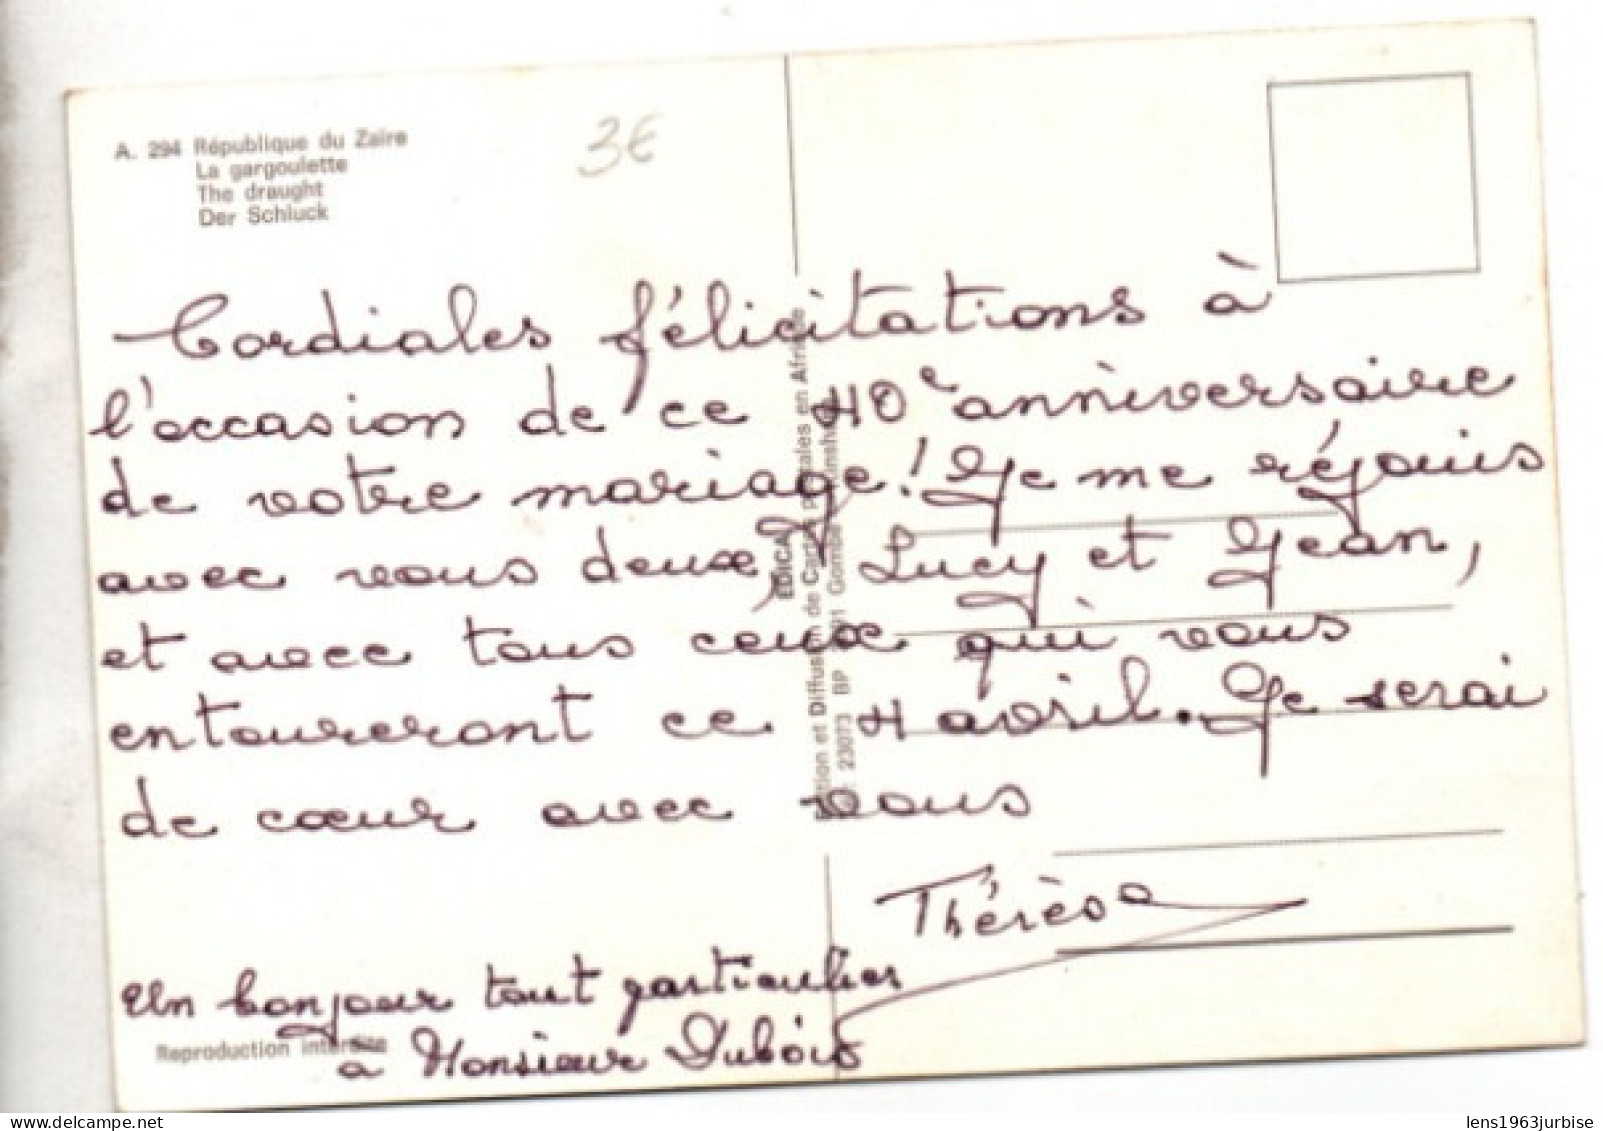 A. 294 République du Zaïre
La gargoulette
The draught
Der Schluck
3€
Cordiales félicitations à
l'occasion de ce 40e anniversaire
de votre mariage! Je me réjouis
avec vous deux, Lucy et Jean,
et avec tous ceux qui vous
entoureront ce 4 avril. Je serai
de cœur avec vous
Thérèse
Un bonjour tout particulier
à Monsieur Dubois
Reproduction interdite
EDICA
et Diffusion de en Afrique
23073 BP
lens1963jurbise